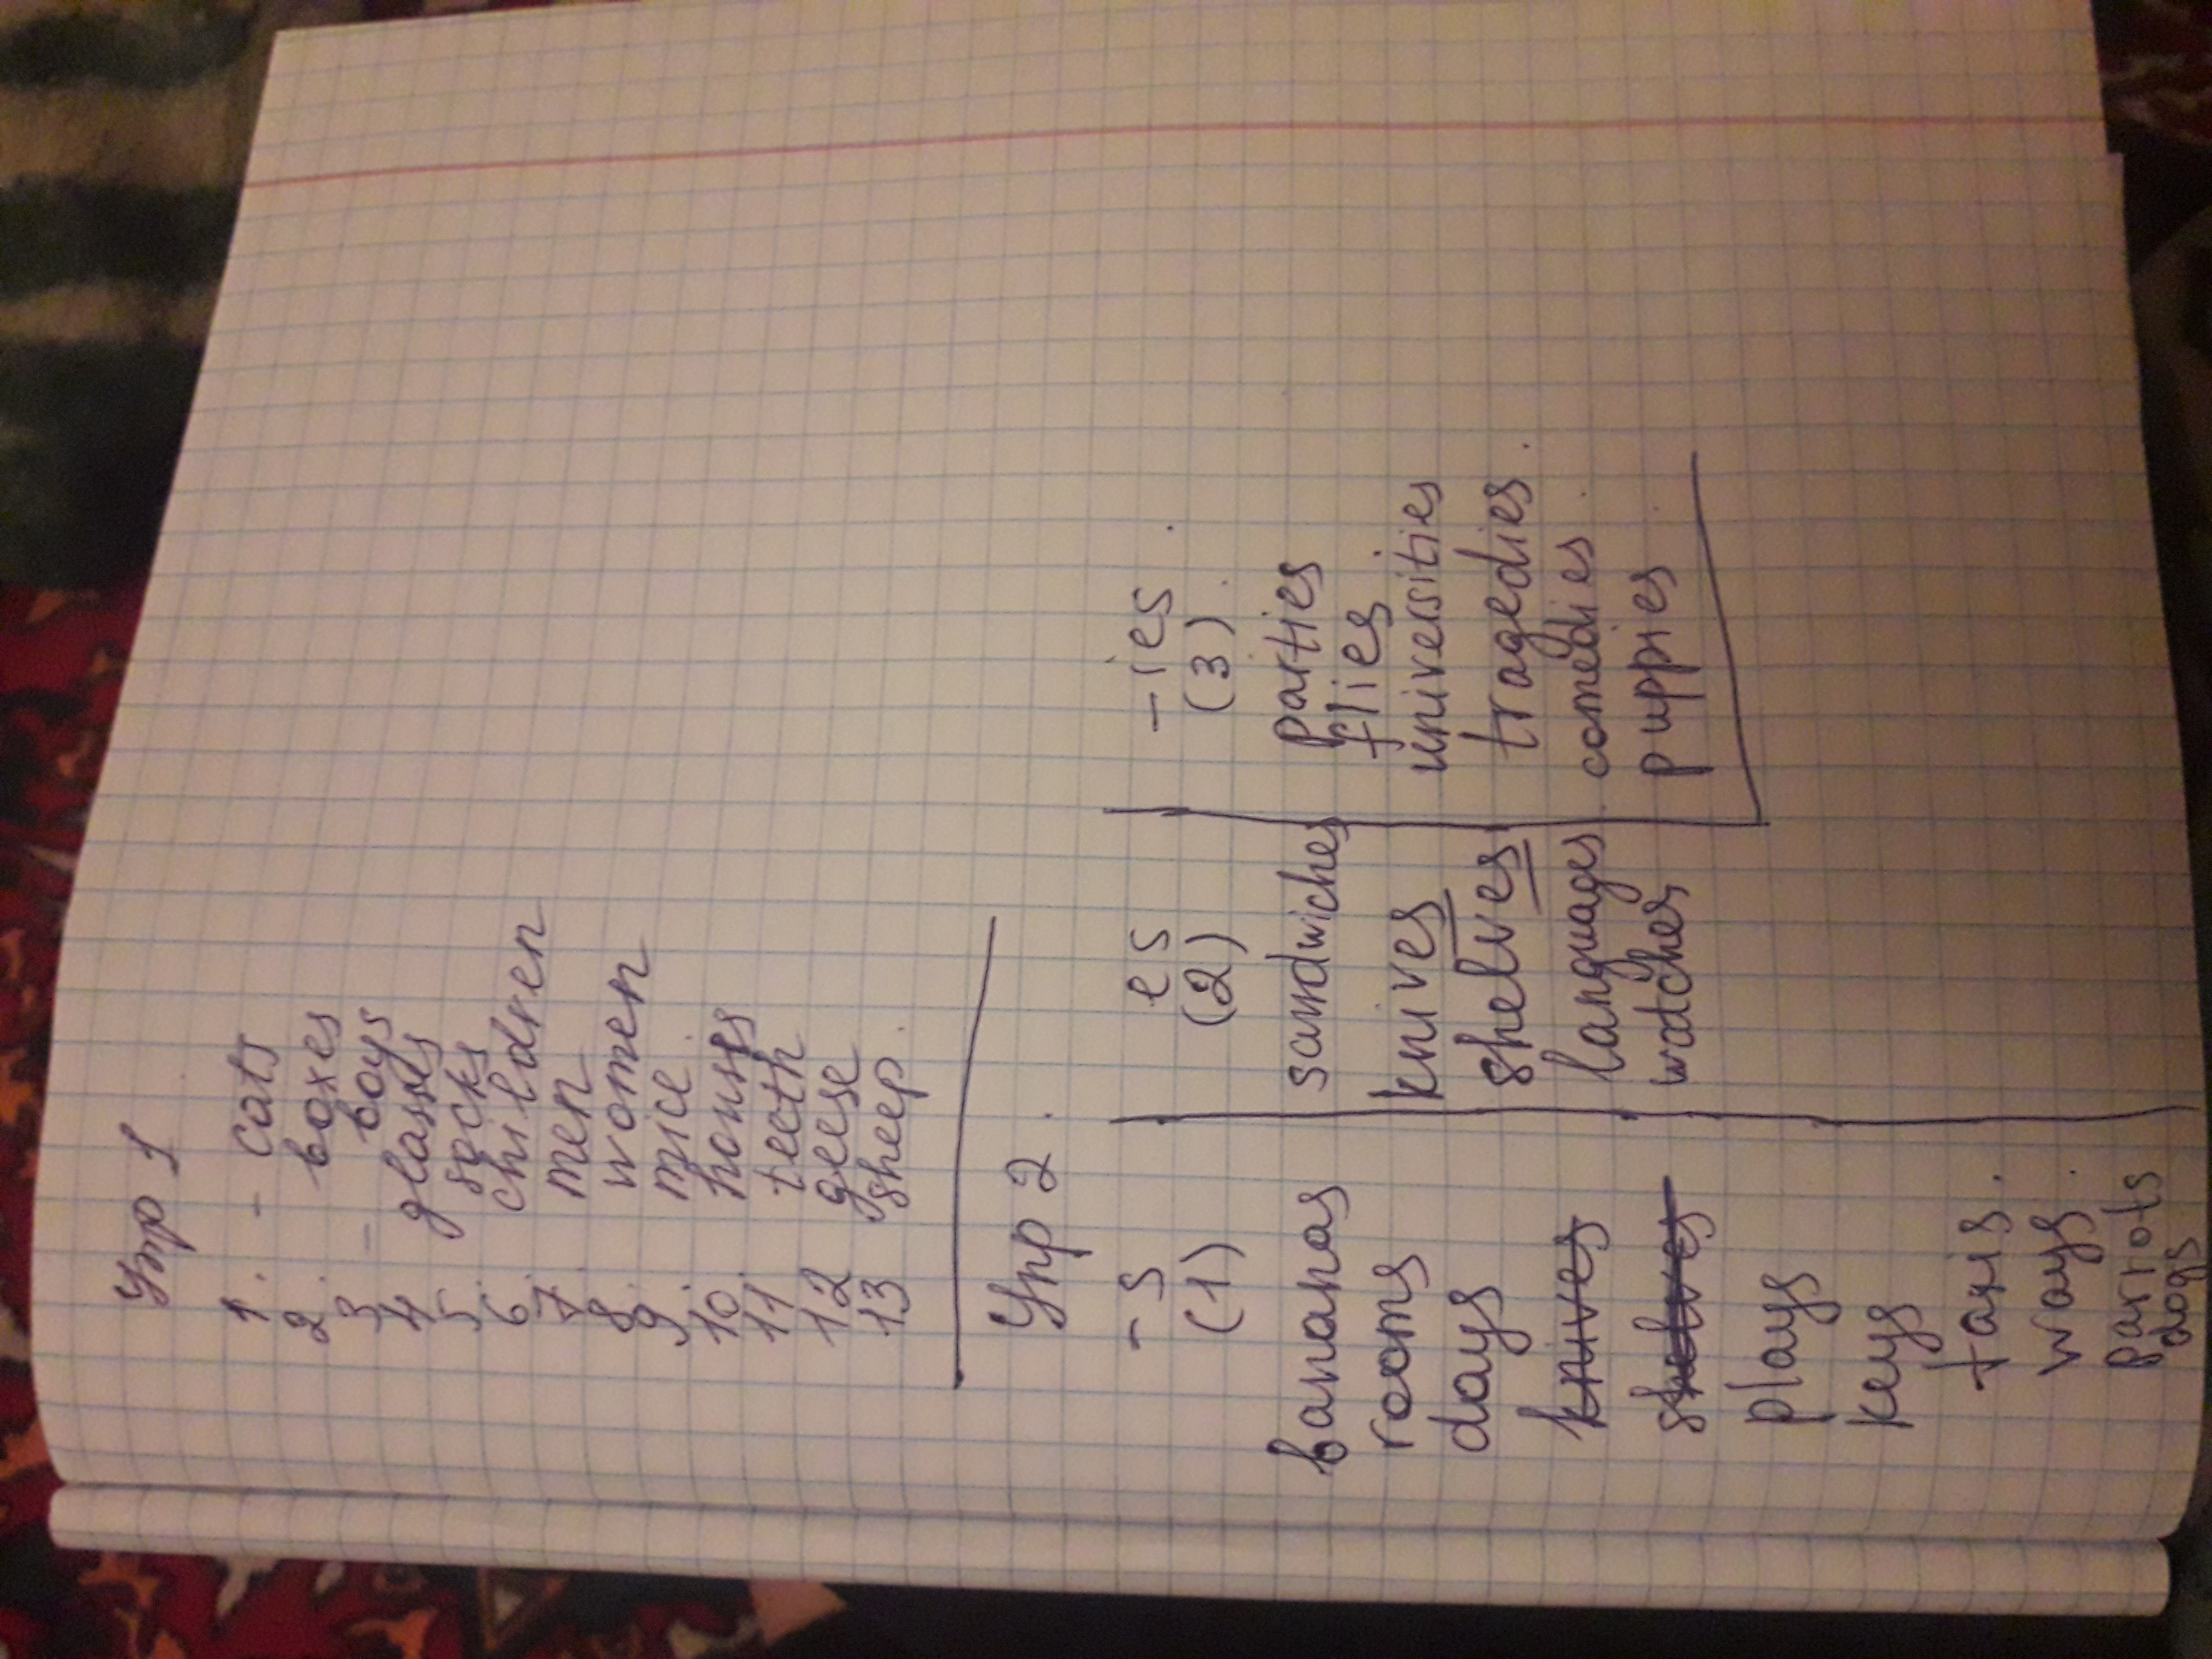 Упр 1
1. - cats
2. boxes
3 - boys
4 glasses
5. socks
6. children
7. men
8. women
9. mice
10. houses
11. teeth
12 geese
13 sheep.
Упр 2.
-s es -ies.
(1) (2) (3).
bananas sandwiches parties
rooms knives flies
days shelves universities
knives languages tragedies.
shelves watches comedies.
plays puppies
keys
taxis.
ways.
parrots
dogs